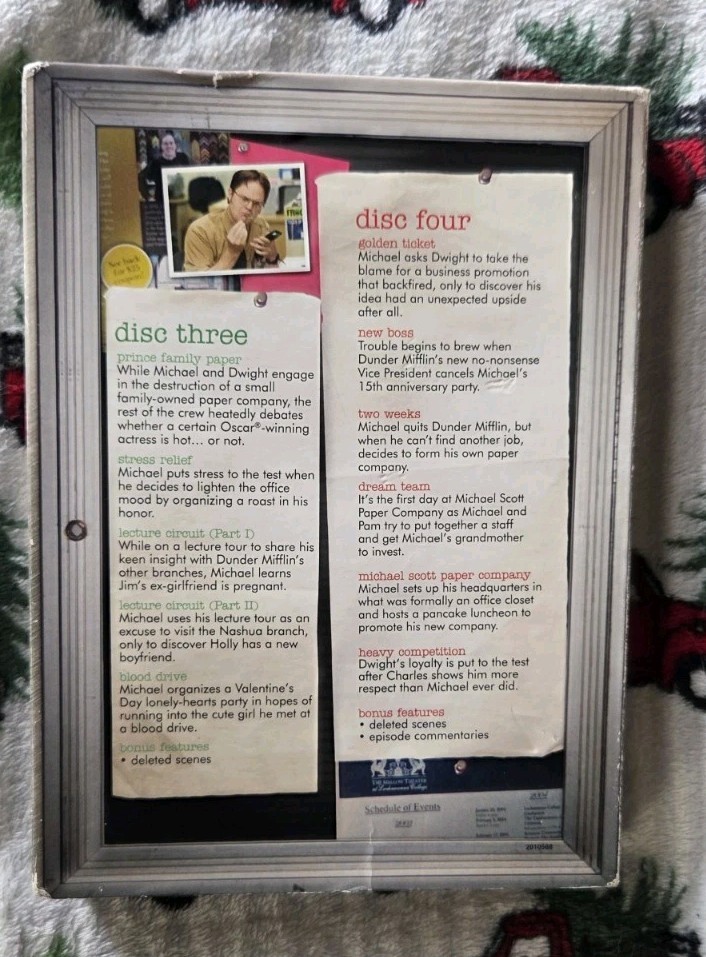 See back
for $25
disc three
prince family paper
While Michael and Dwight engage
in the destruction of a small
family-owned paper company, the
rest of the crew heatedly debates
whether a certain Oscar®-winning
actress is hot... or not.
stress relief
Michael puts stress to the test when
he decides to lighten the office
mood by organizing a roast in his
honor.
lecture circuit (Part I)
While on a lecture tour to share his
keen insight with Dunder Mifflin's
other branches, Michael learns
Jim's ex-girlfriend is pregnant.
lecture circuit (Part II)
Michael uses his lecture tour as an
excuse to visit the Nashua branch,
only to discover Holly has a new
boyfriend.
blood drive
Michael organizes a Valentine's
Day lonely-hearts party in hopes of
running into the cute girl he met at
a blood drive.
bonus features
• deleted scenes
disc four
golden ticket
Michael asks Dwight to take the
blame for a business promotion
that backfired, only to discover his
idea had an unexpected upside
after all.
new boss
Trouble begins to brew when
Dunder Mifflin's new no-nonsense
Vice President cancels Michael's
15th anniversary party.
two weeks
Michael quits Dunder Mifflin, but
when he can't find another job,
decides to form his own paper
company.
dream team
It's the first day at Michael Scott
Paper Company as Michael and
Pam try to put together a staff
and get Michael's grandmother
to invest.
michael scott paper company
Michael sets up his headquarters in
what was formally an office closet
and hosts a pancake luncheon to
promote his new company.
heavy competition
Dwight's loyalty is put to the test
after Charles shows him more
respect than Michael ever did.
bonus features
• deleted scenes
• episode commentaries
Schedule of Events